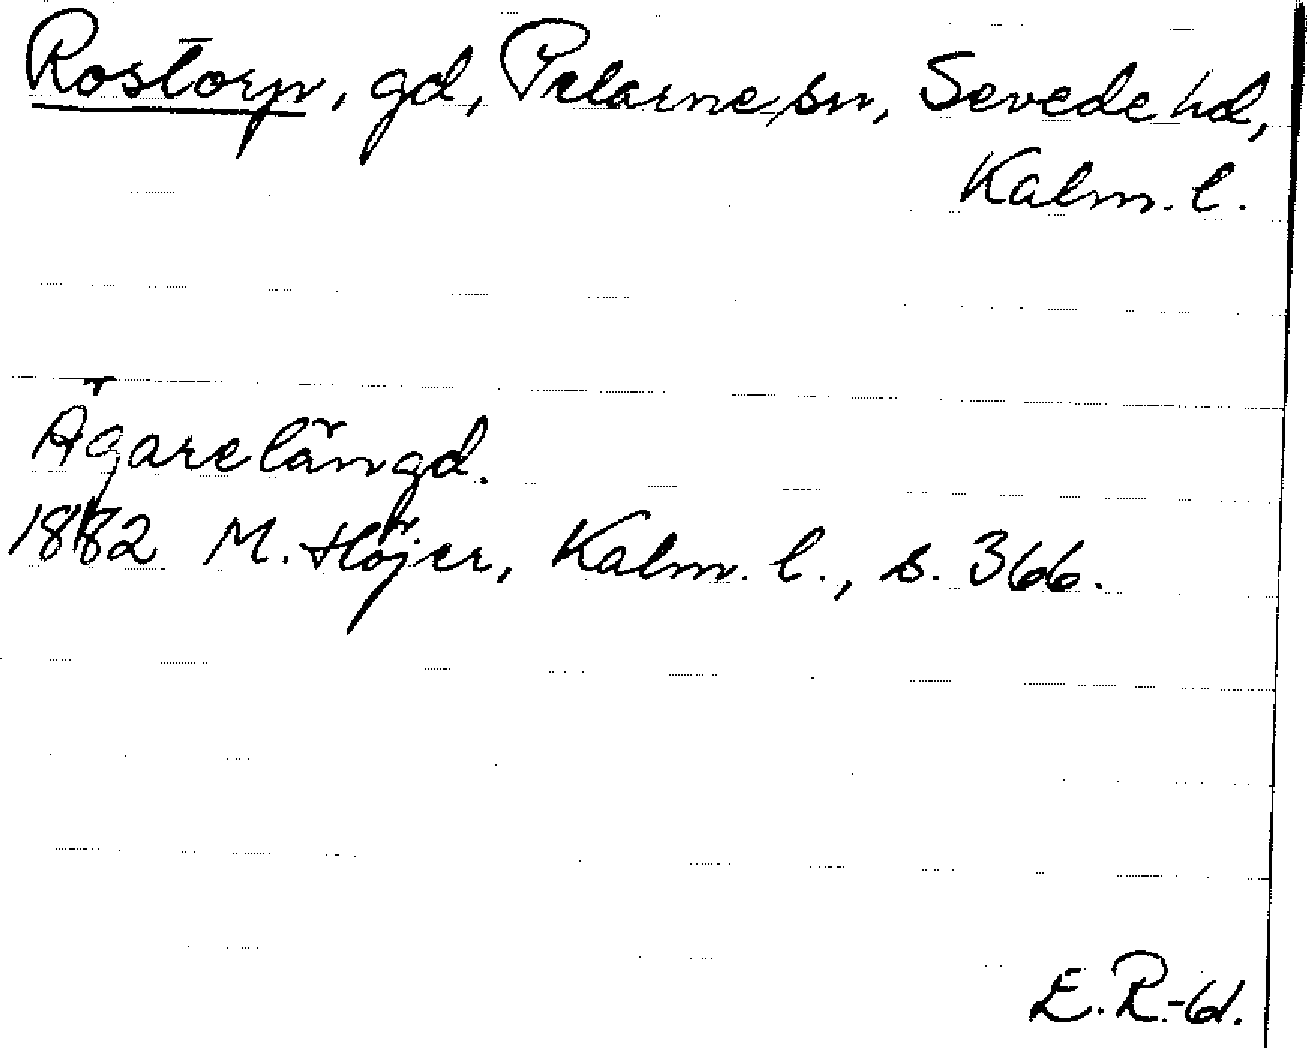 Rostorp, gd, Pelarne sn, Sevede hd,
Kalm. l.
Ägarelängd.
1882 M. Höjer, Kalm. l., s. 366.
E. R. -61.